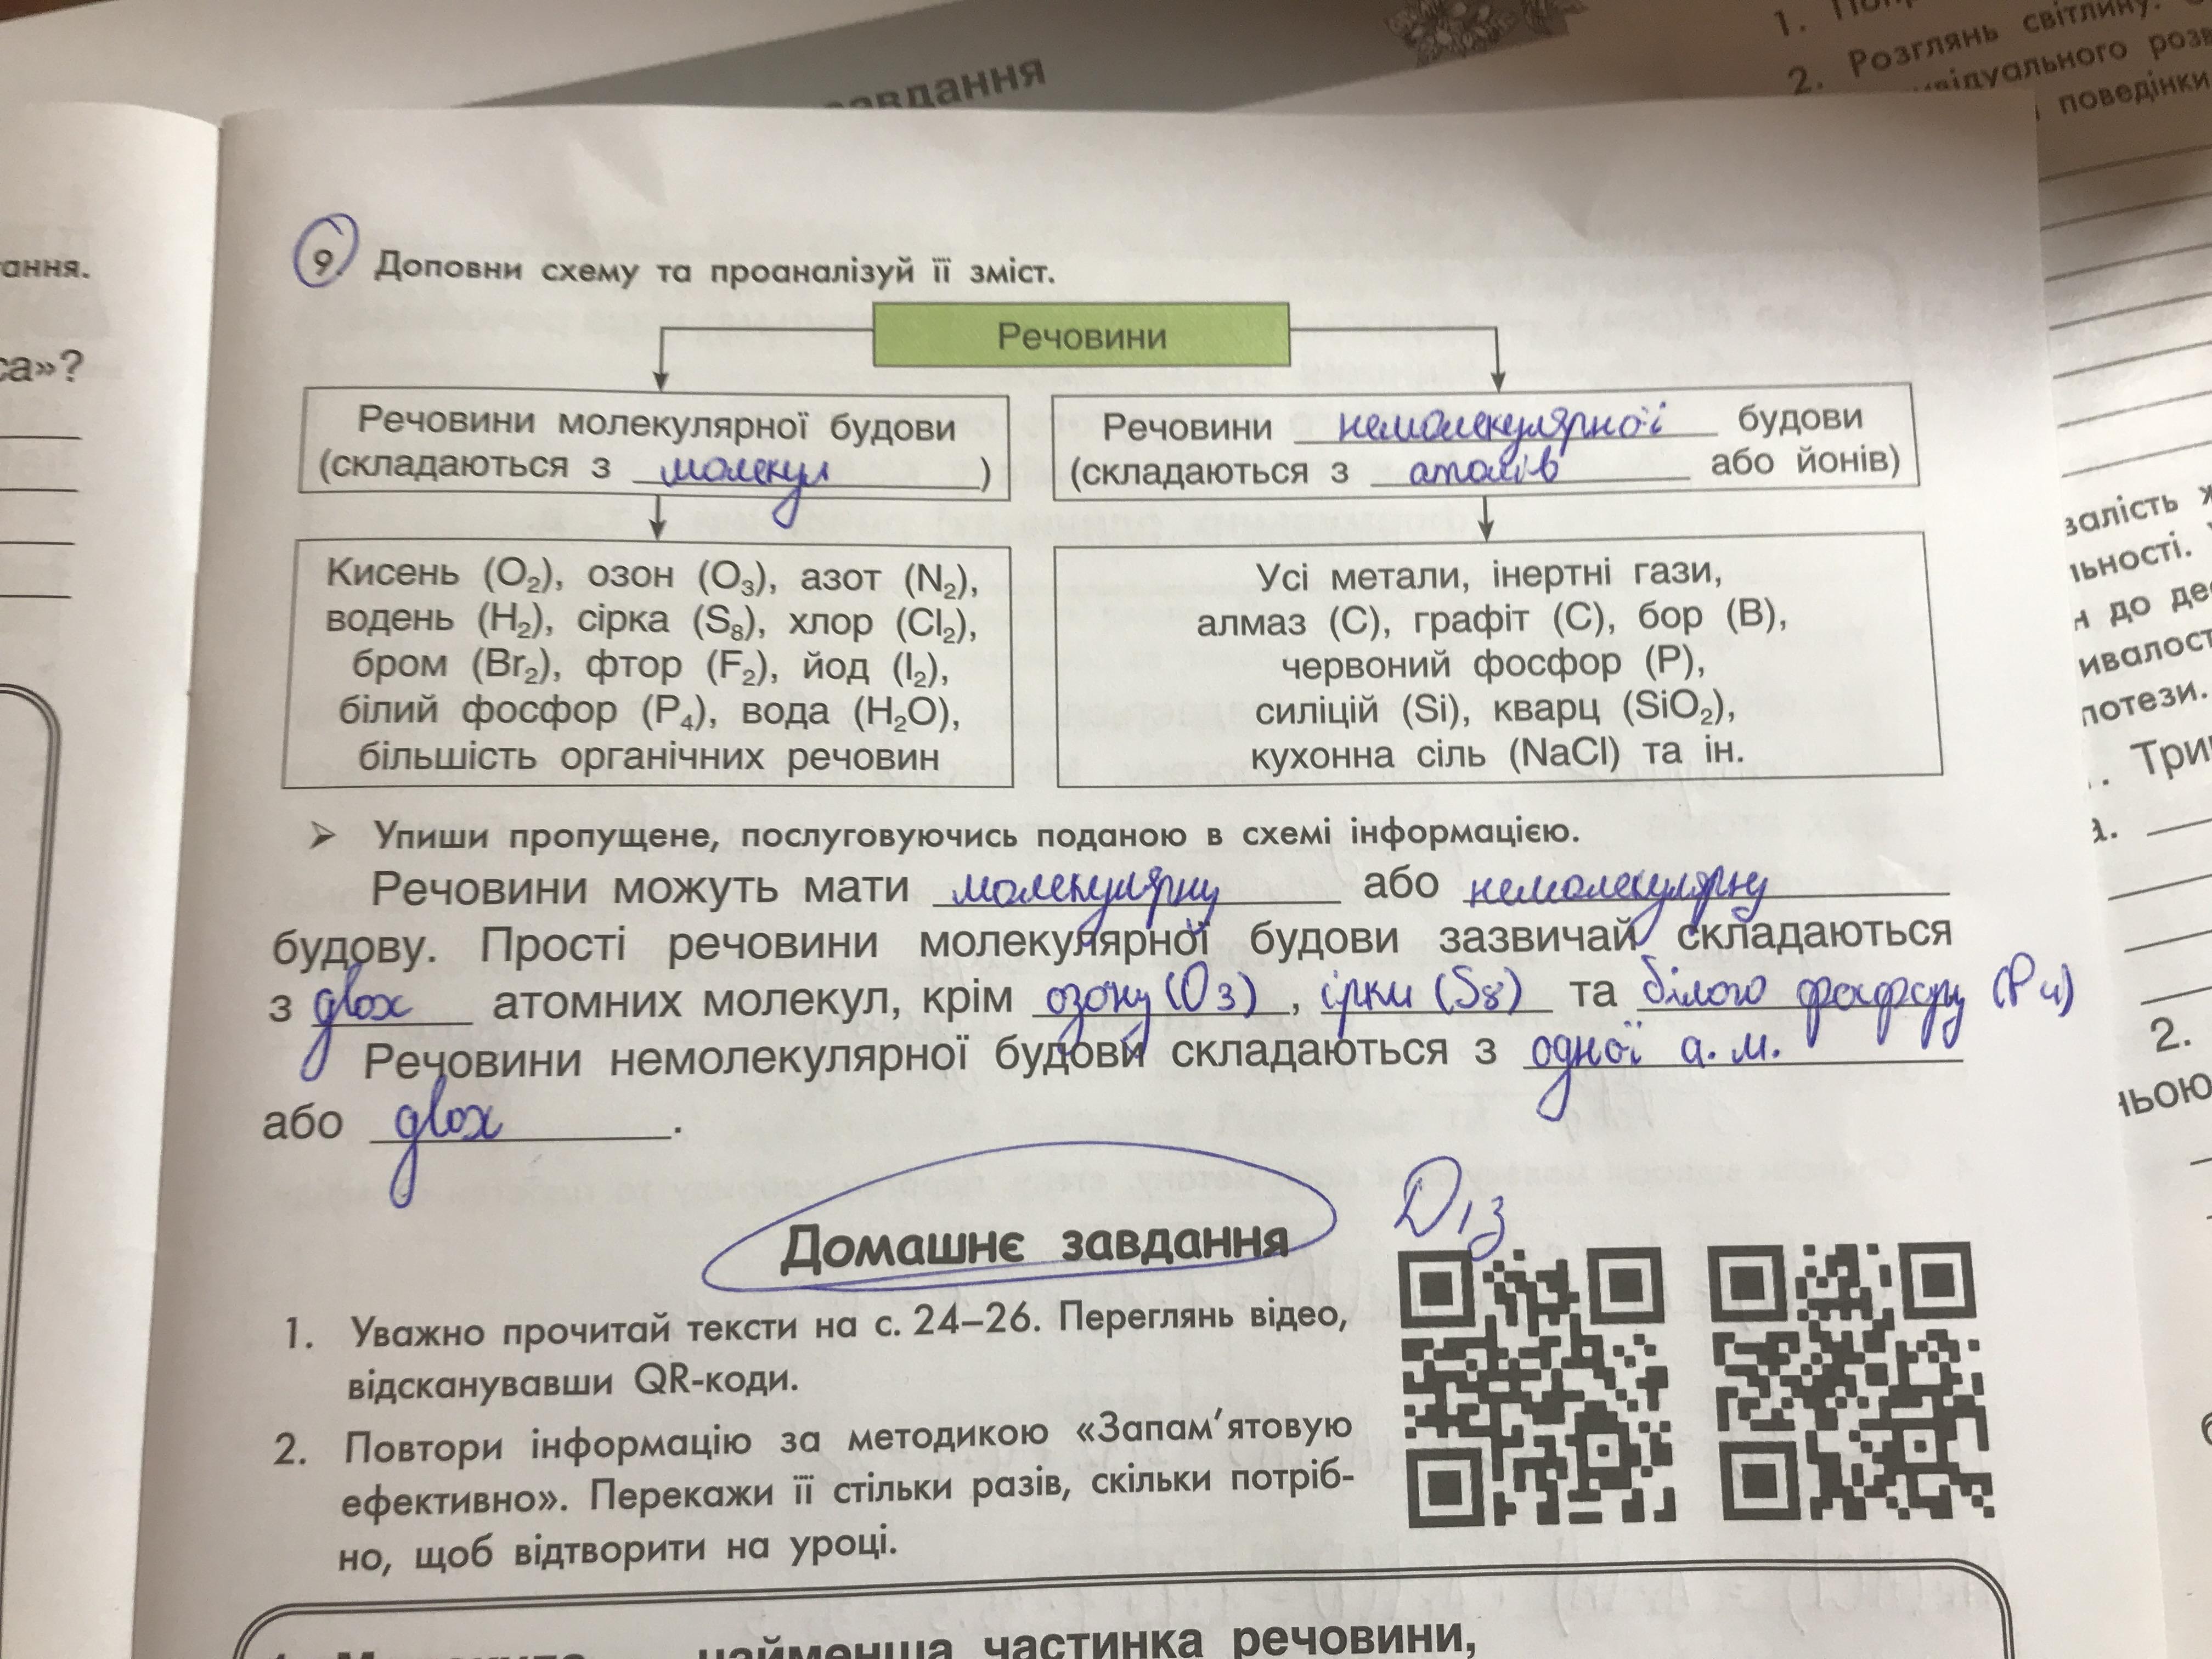 завдання
1.
2. Розглянь світлину.
поведінки
ання.
са»?
9. Доповни схему та проаналізуй її зміст.
Речовини
Речовини молекулярної будови
(складаються з молекул)
Речовини немолекулярної будови
(складаються з атомів або йонів)
Кисень (O₂), озон (O₃), азот (N₂),
водень (H₂), сірка (S₈), хлор (Cl₂),
бром (Br₂), фтор (F₂), йод (I₂),
білий фосфор (P₄), вода (H₂O),
більшість органічних речовин
Усі метали, інертні гази,
алмаз (C), графіт (C), бор (B),
червоний фосфор (P),
силіцій (Si), кварц (SiO₂),
кухонна сіль (NaCl) та ін.
➤ Упиши пропущене, послуговуючись поданою в схемі інформацією.
Речовини можуть мати молекулярну або немолекулярну
будову. Прості речовини молекулярної будови зазвичай складаються
з двох атомних молекул, крім озону (O3), ірки (S8) та білого фосфору (P4)
Речовини немолекулярної будови складаються з одної а.м.
або двох.
Домашнє завдання
Д/з
1. Уважно прочитай тексти на с. 24–26. Переглянь відео,
відсканувавши QR-коди.
2. Повтори інформацію за методикою «Запам’ятовую
ефективно». Перекажи її стільки разів, скільки потріб-
но, щоб відтворити на уроці.
найменша частинка речовини,
валість
льності.
до
потези.
2.
ньою